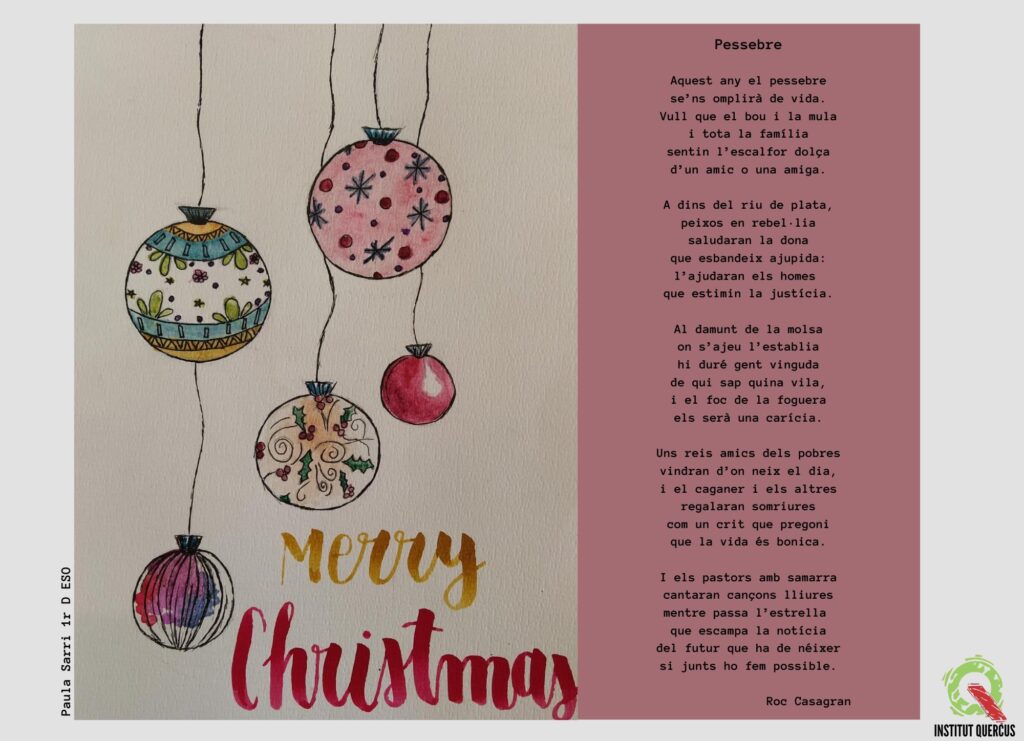 Merry
Christmas
Paula Sarri 1r D ESO
Pessebre
Aquest any el pessebre
se'ns omplirà de vida.
Vull que el bou i la mula
i tota la família
sentin l'escalfor dolça
d'un amic o una amiga.
A dins del riu de plata,
peixos en rebel·lia
saludaran la dona
que esbandeix ajupida:
l'ajudaran els homes
que estimin la justícia.
Al damunt de la molsa
on s'ajeu l'establia
hi duré gent vinguda
de qui sap quina vila,
i el foc de la foguera
els serà una carícia.
Uns reis amics dels pobres
vindran d'on neix el dia,
i el caganer i els altres
regalaran somriures
com un crit que pregoni
que la vida és bonica.
I els pastors amb samarra
cantaran cançons lliures
mentre passa l'estrella
que escampa la notícia
del futur que ha de néixer
si junts ho fem possible.
Roc Casagran
INSTITUT QUERCUS